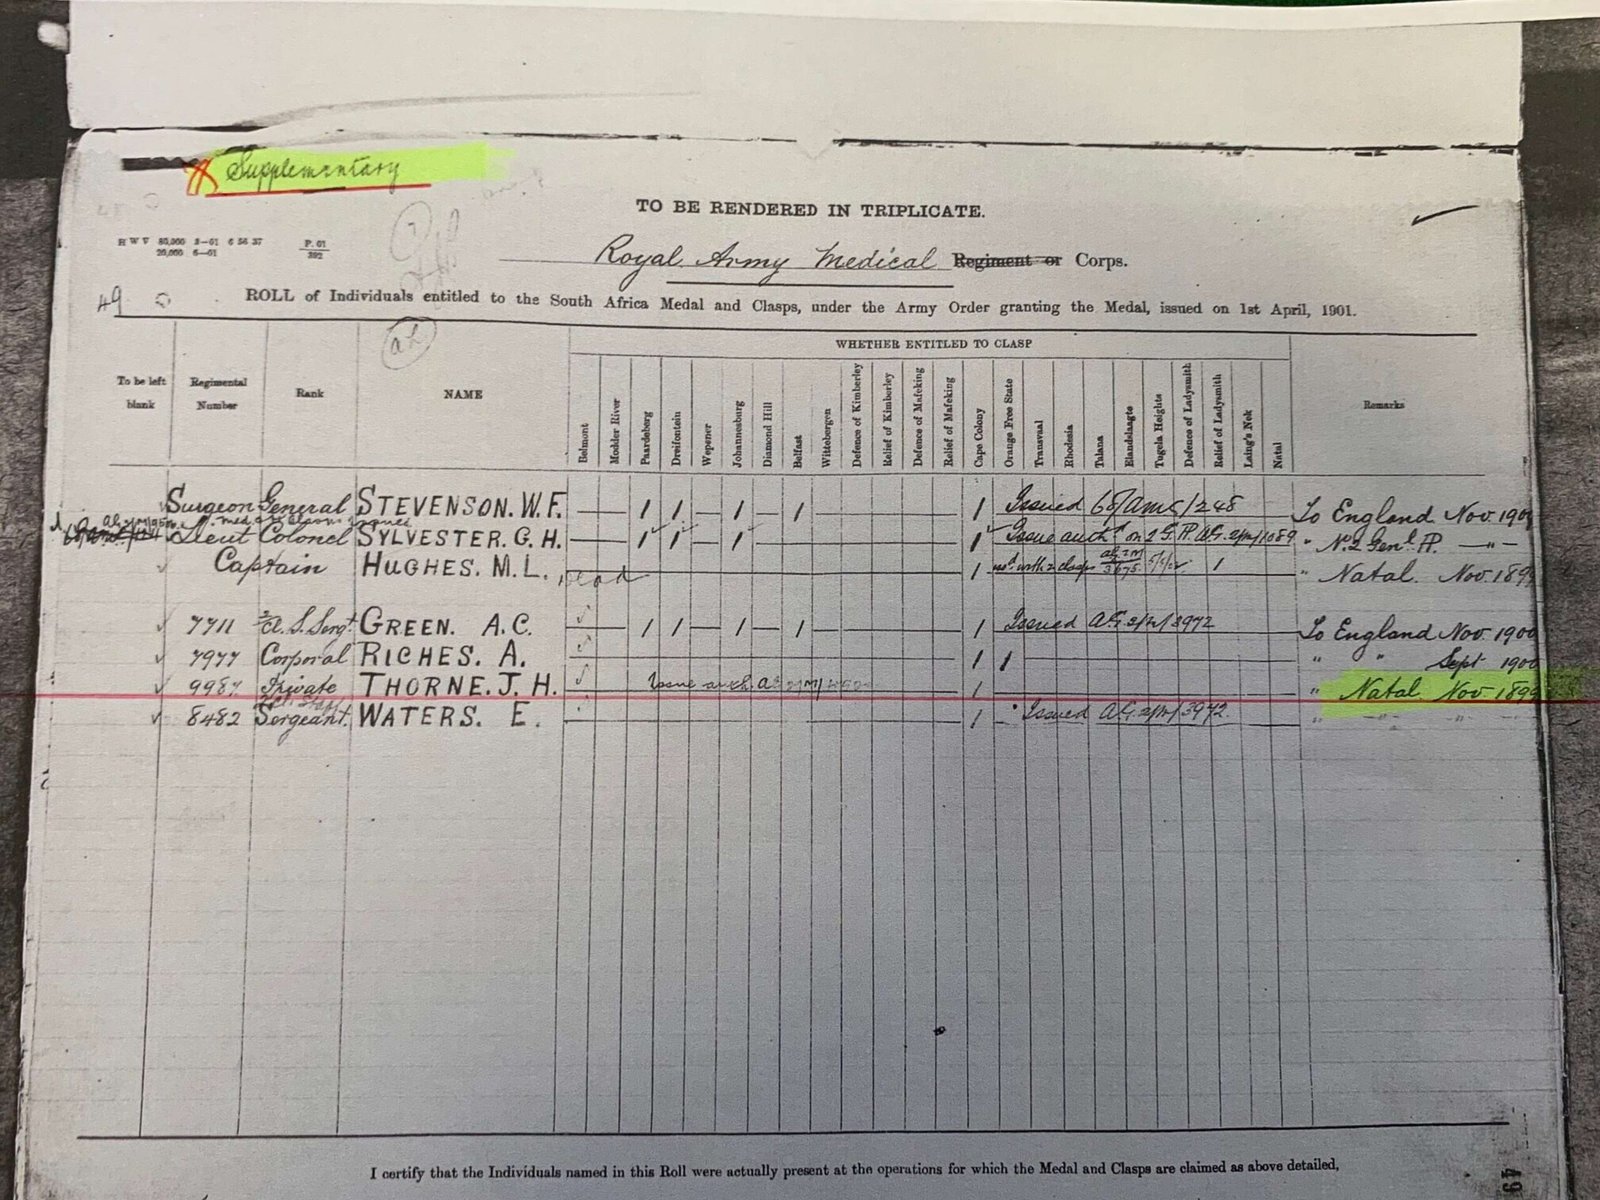 Supplementary
TO BE RENDERED IN TRIPLICATE.
H W V 80,000 3—01 6 56 37
20,000 6—01
P. 01
392
Royal Army Medical Regiment or Corps.
49
ROLL of Individuals entitled to the South Africa Medal and Clasps, under the Army Order granting the Medal, issued on 1st April, 1901.
WHETHER ENTITLED TO CLASP
To be left blank Regimental Number Rank NAME Belmont Modder River Paardeberg Dreifontein Wepener Johannesburg Diamond Hill Belfast Wittebergen Defence of Kimberley Relief of Kimberley Defence of Mafeking Relief of Mafeking Cape Colony Orange Free State Transvaal Rhodesia Talana Elandslaagte Tugela Heights Defence of Ladysmith Relief of Ladysmith Laing's Nek Natal Remarks
Surgeon General STEVENSON. W. F. 1 1 1 1 1 Issued 68/AMC/248 To England Nov. 1900
Lieut Colonel SYLVESTER. G. H. 1 1 1 1 Issue auth. on " No. 2 Genl. H. — " —
Captain HUGHES. M. L. dead 1 1 " Natal. Nov. 1899
7711 S. Sergt. GREEN. A. C. 1 1 1 1 1 Issued AG 2/M/3972 To England Nov. 1900
7977 Corporal RICHES. A. 1 1 " " Sept 1900
9987 Private THORNE. J. H. Issue auth. 1 " Natal Nov 1899
8482 Sergeant. WATERS. E. 1 Issued AG 2/M/3972. " " " "
I certify that the Individuals named in this Roll were actually present at the operations for which the Medal and Clasps are claimed as above detailed,
49